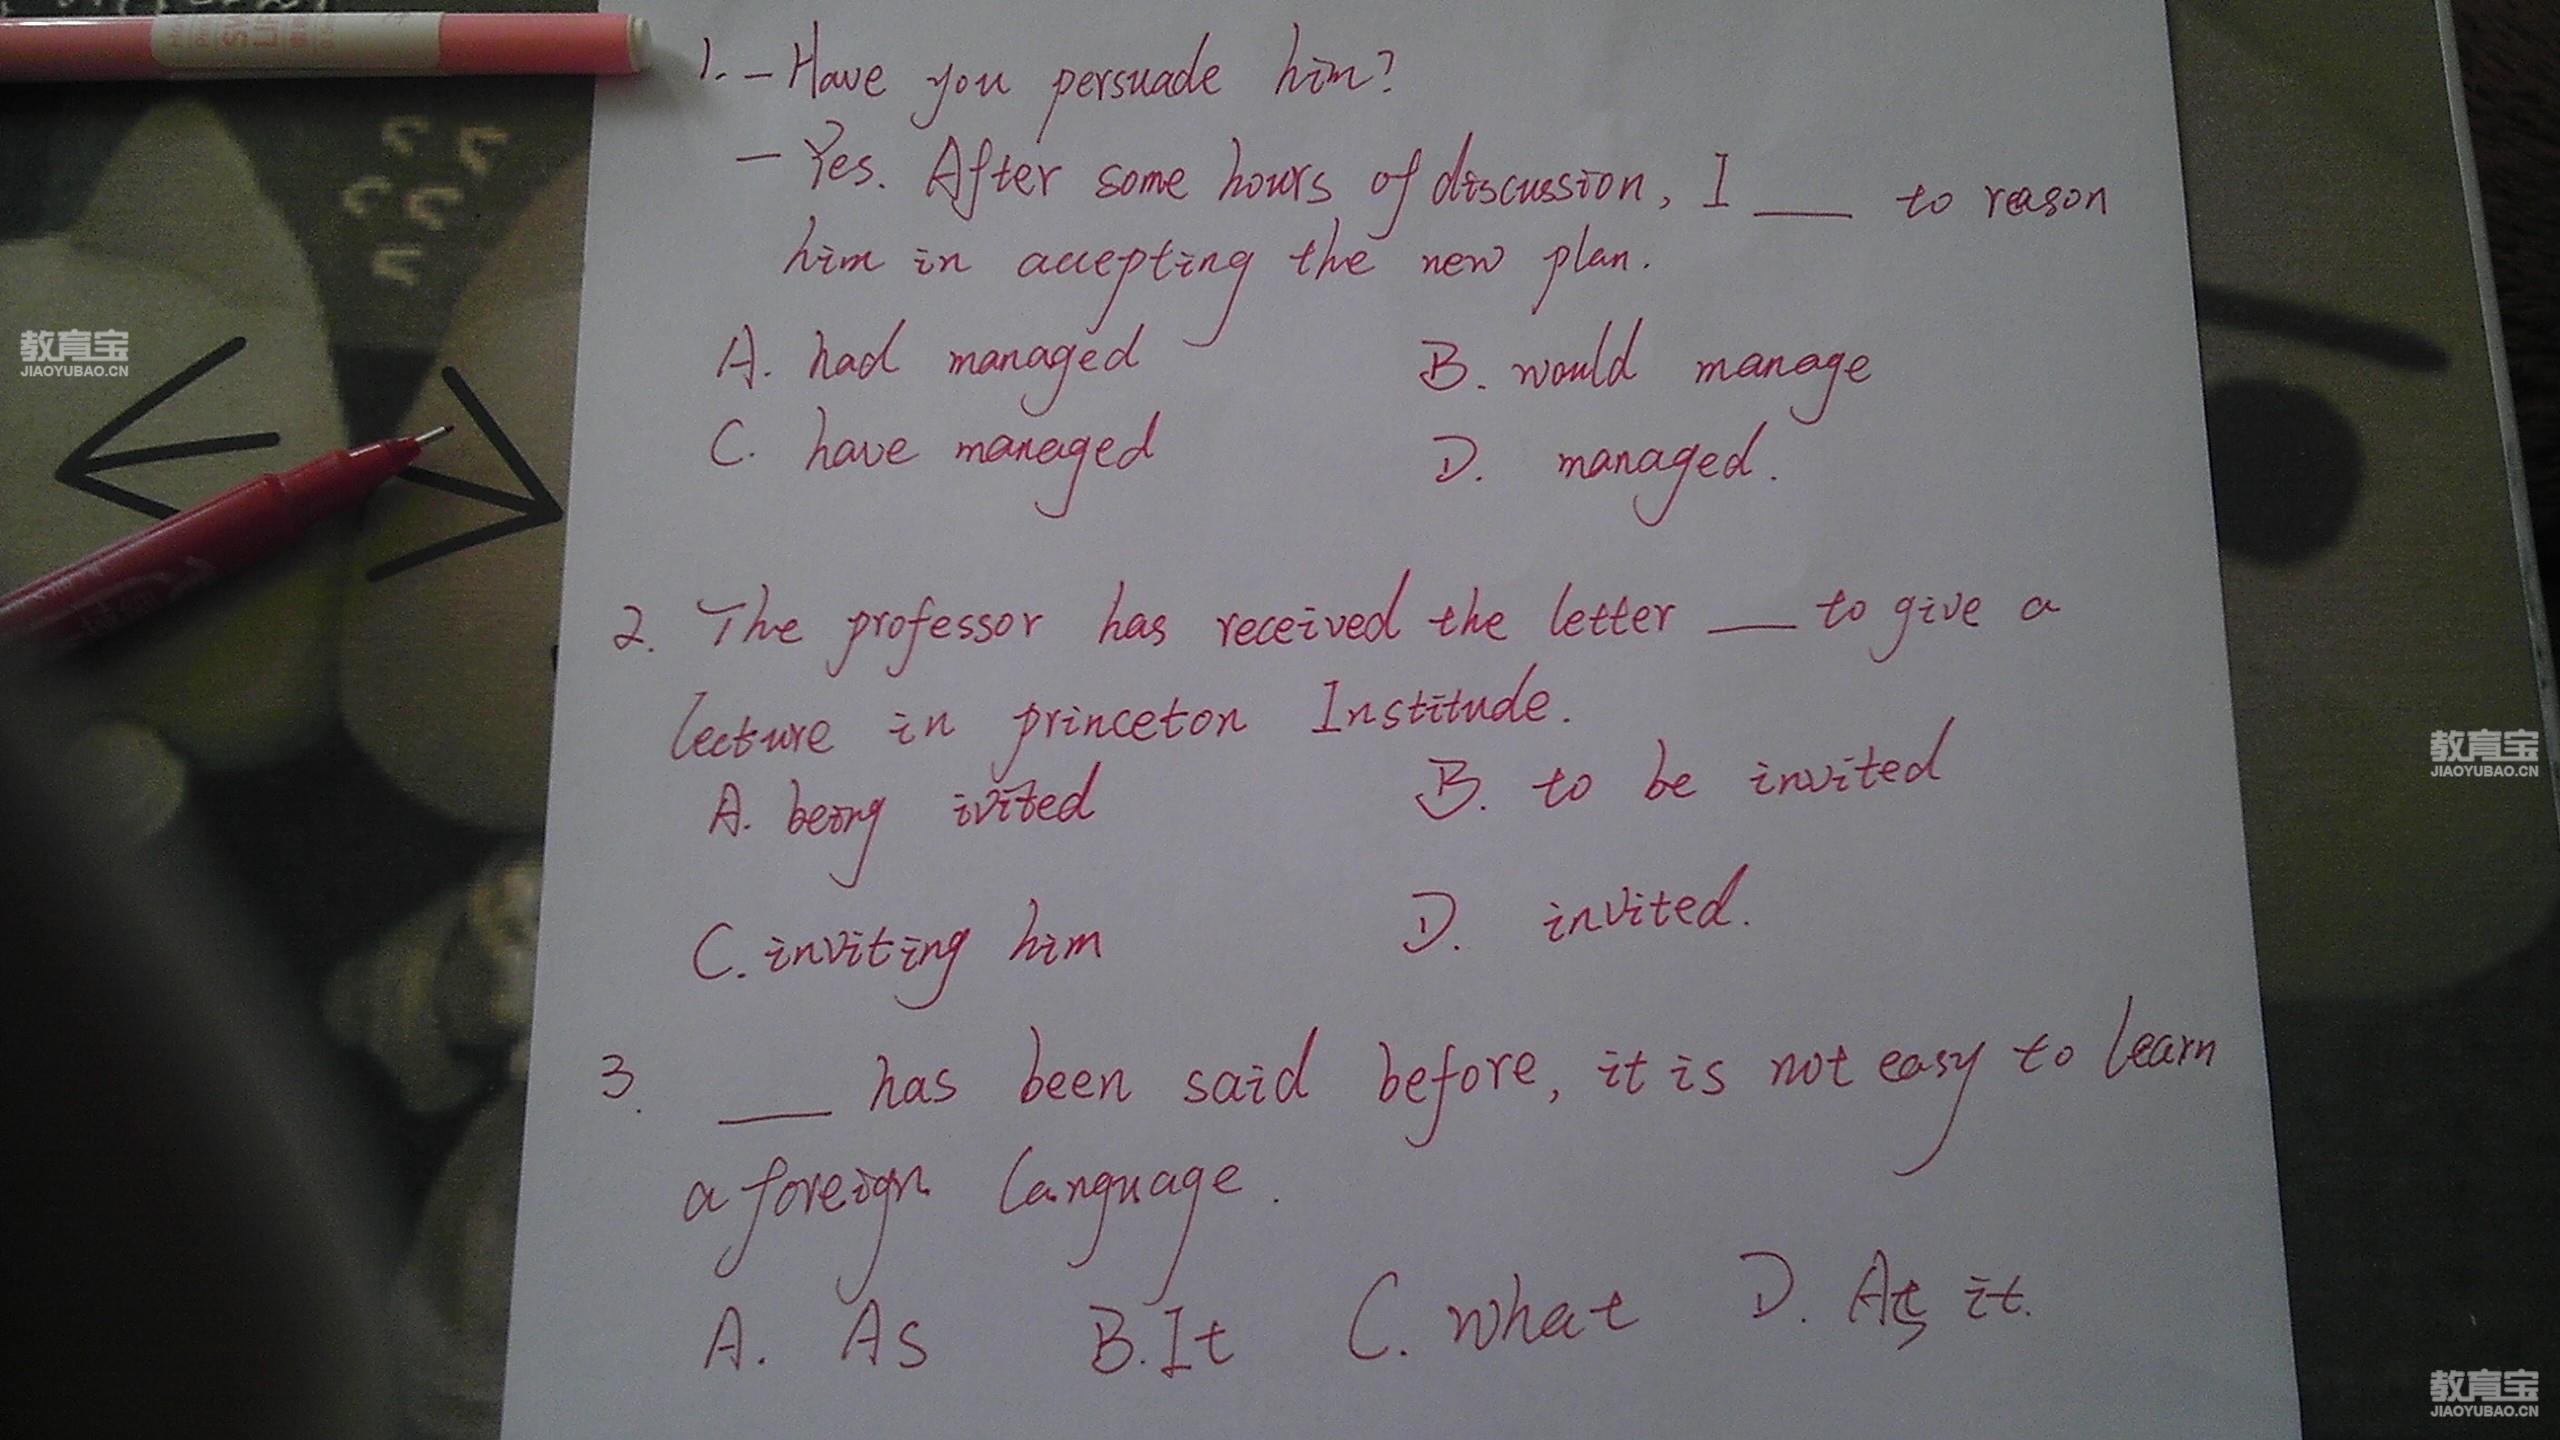 1. – Have you persuade him?
– Yes. After some hours of discussion, I ___ to reason
him in accepting the new plan.
A. had managed B. would manage
C. have managed D. managed.
2. The professor has received the letter ___ to give a
lecture in princeton Institude.
A. being ivited B. to be invited
C. inviting him D. invited.
3. ___ has been said before, it is not easy to learn
a foreign language.
A. As B. It C. what D. As it.
教育宝
JIAOYUBAO.CN
教育宝
JIAOYUBAO.CN
教育宝
JIAOYUBAO.CN